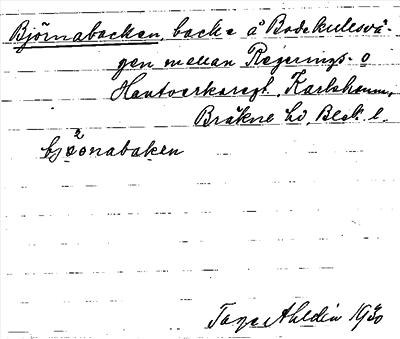 Björnabacken, backe å Bodekullsvä-
gen mellan Regerings- o
Hantverkaregt. Karlshamn,
Bräkne hd, Blek. l.
bjö̀onabaken
Tage Ahldin 1930